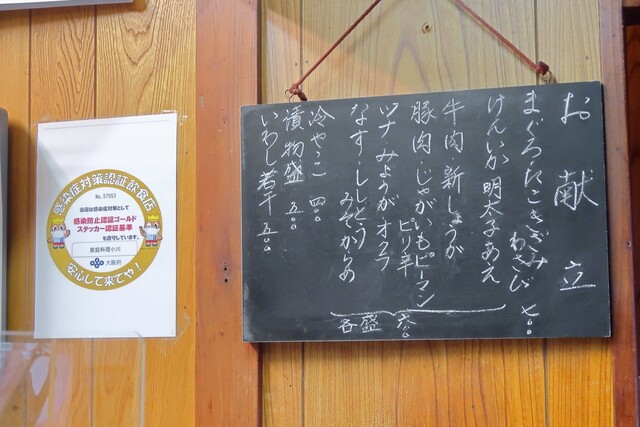 お献立
まぐろ・たこきざみわさび 七〇〇
けんいか 明太子あえ
牛肉・新しょうが
豚肉・じゃがいもピーマン
ピリ辛
ツナ・みょうが オクラ
なす・ししとう
みそからめ
各盛 六〇〇
冷やっこ 四〇〇
漬物盛 五〇〇
いわし若干 五〇〇
感染症対策認証飲食店
No. 57553
当店は感染症対策として
感染防止認証ゴールド
ステッカー認証基準
を遵守しています。
家庭料理小川
大阪府
安心して来てや!